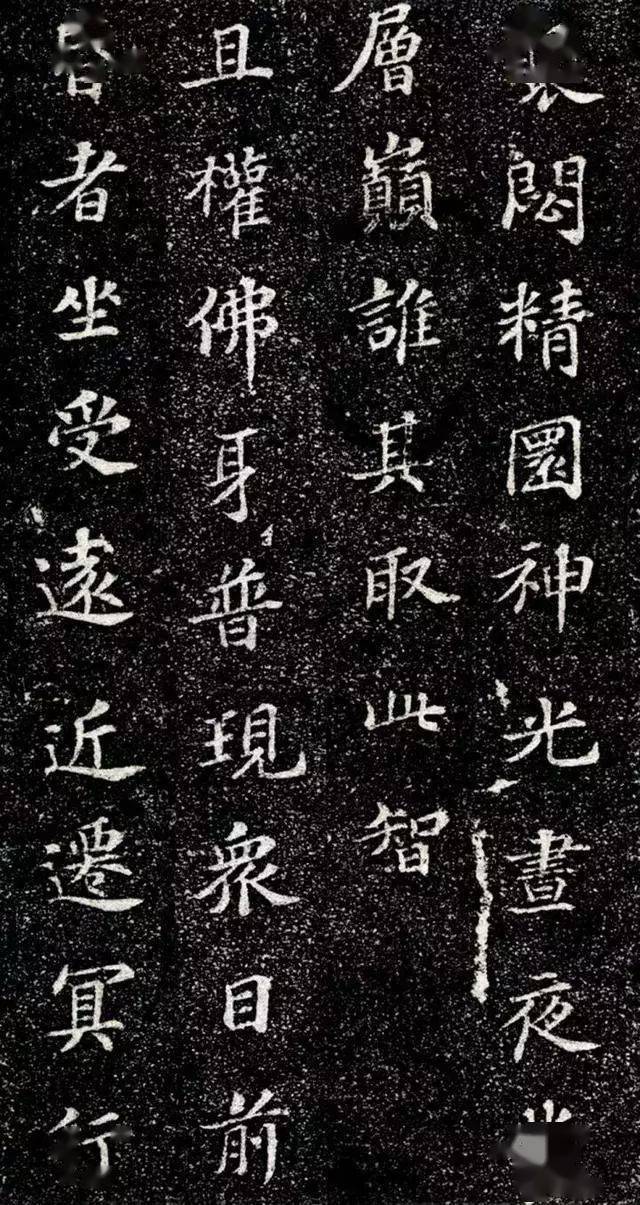 閟精圜神光晝夜
層巔誰其取此智
且權佛身普現衆目前
者坐受遠近遷冥行